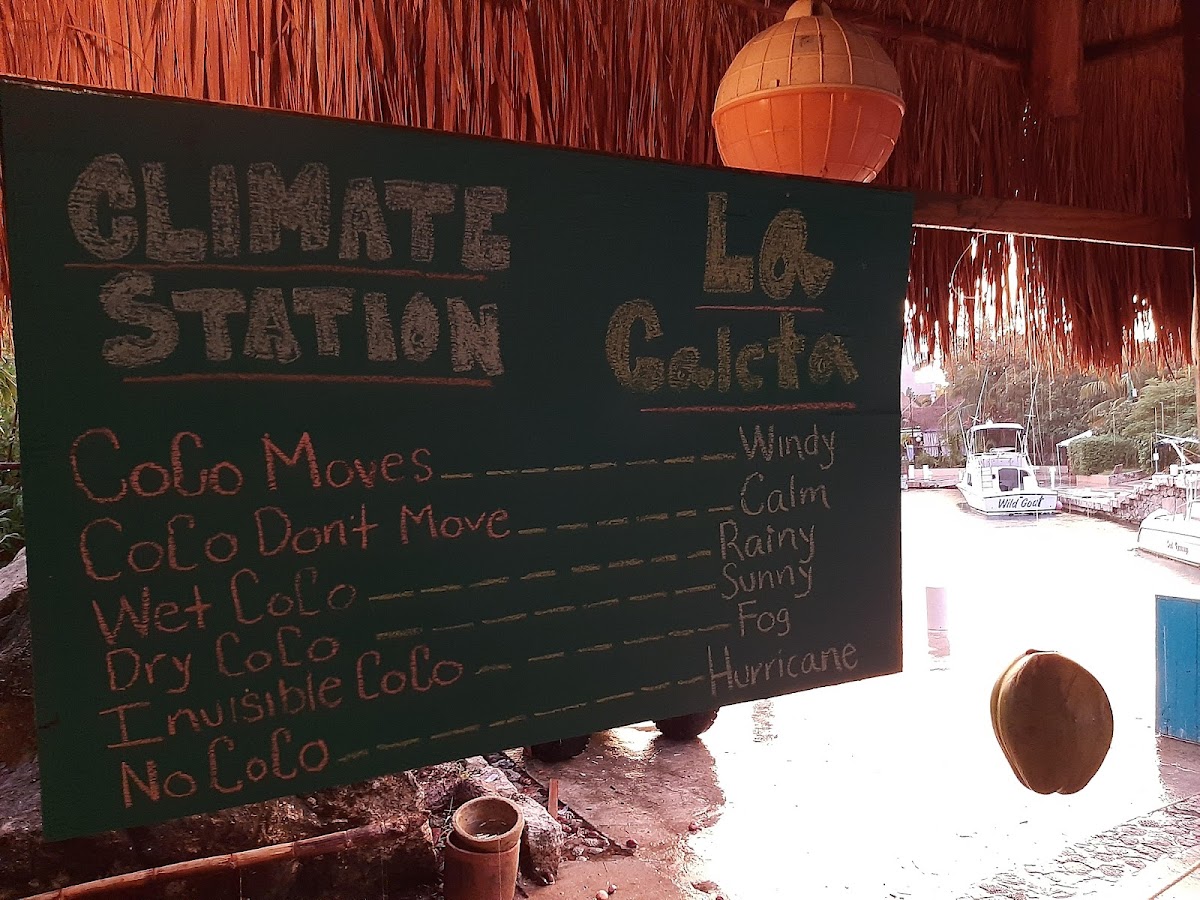 CLIMATE
STATION
La
Galeta
CoCo Moves -------- Windy
CoCo Don't Move ------ Calm
Wet CoCo -------- Rainy
Dry CoCo -------- Sunny
Invisible CoCo ------ Fog
No CoCo --------- Hurricane
Wild Goat